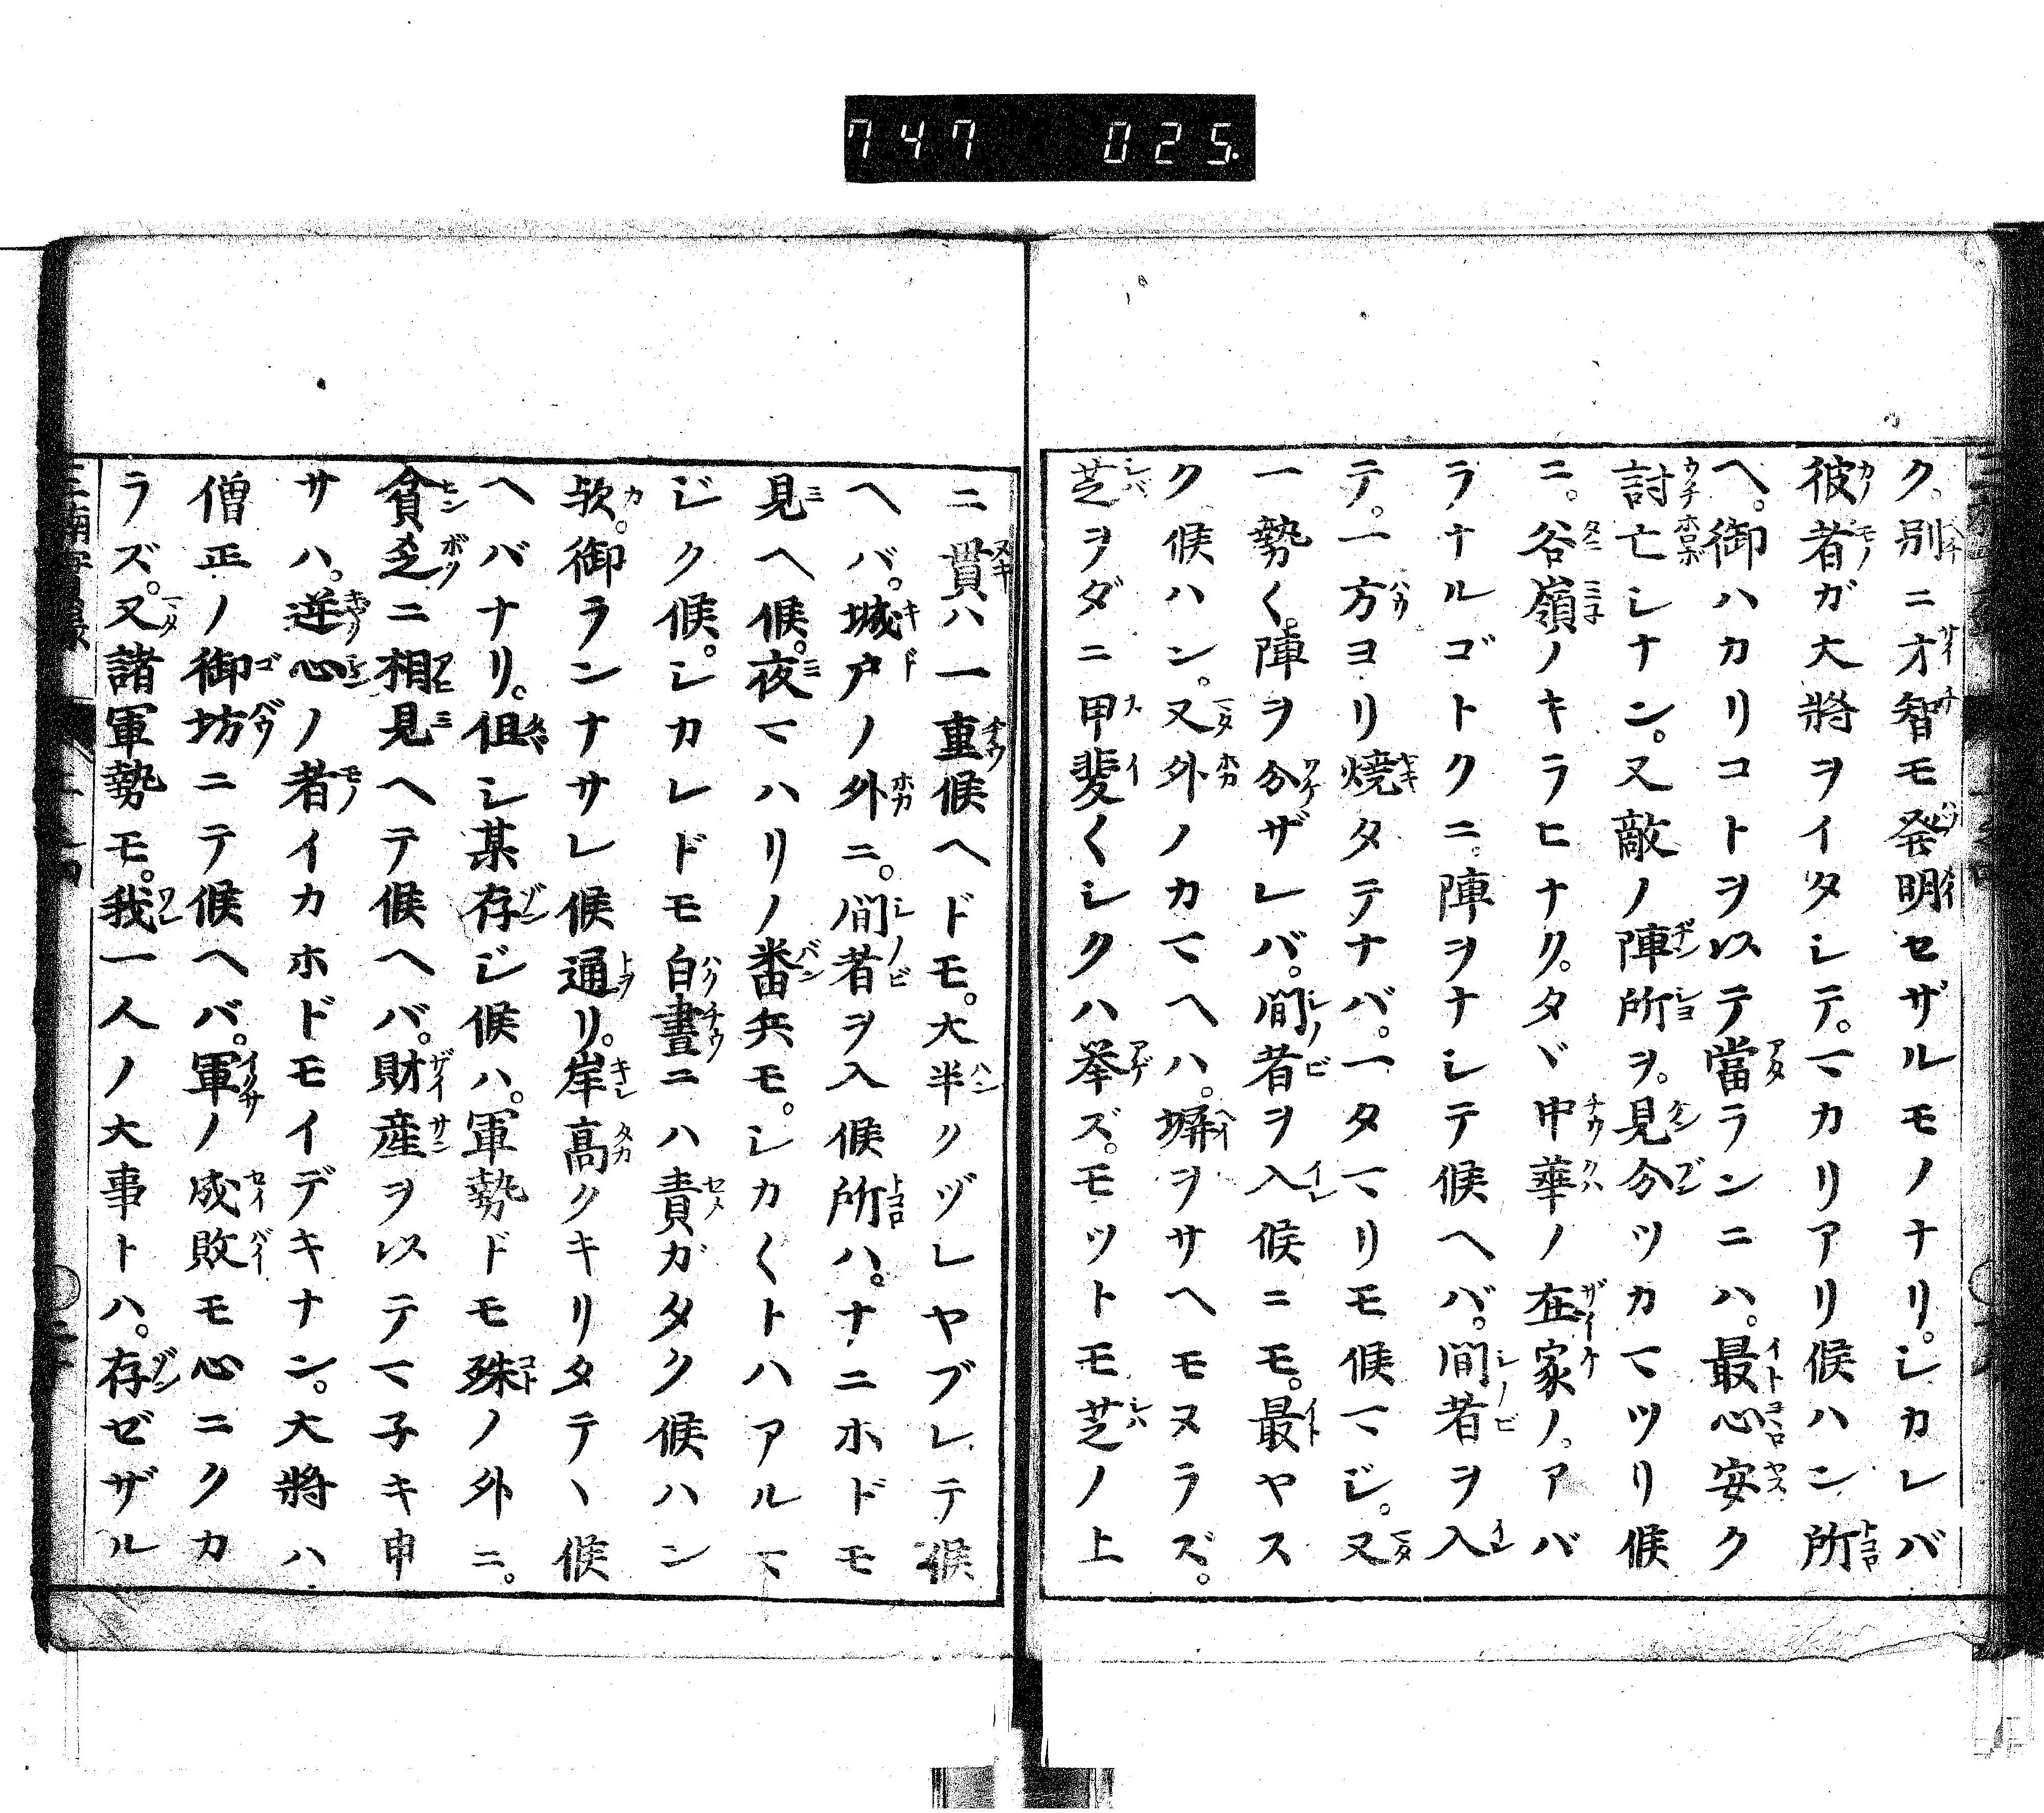 747 025.
ク。別ニ才智モ発明セザルモノナリ。シカレバ
彼者ガ大將ヲイタシテ。マカリアリ候ハン所
ヘ。御ハカリコトヲ以テ當ランニハ。最心安ク
討亡シナン。又敵ノ陣所ヲ。見分ツカマツリ候
ニ。谷嶺ノキラヒナク。タヾ中華ノ在家ノ。アバ
ラナルゴトクニ。陣ヲナシテ候ヘバ。間者ヲ入
テ。一方ヨリ焼タテナバ。一タマリモ候マジ。又
一勢〱陣ヲ分ザレバ。間者ヲ入候ニモ。最ヤス
ク候ハン。又外ノカマヘハ。塀ヲサヘモヌラズ。
芝ヲダニ甲斐〱シクハ挙ズ。モットモ芝ノ上
ニ貫ハ一重候ヘドモ。大半クヅレヤブレテ候
ヘバ。城戸ノ外ニ。間者ヲ入候所ハ。ナニホドモ
見ヘ候。夜マハリノ番兵モ。シカ〱トハアルマ
ジク候。シカレドモ白晝ニハ責ガタク候ハン
欤。御ランナサレ候通リ。岸高クキリタテヽ候
ヘバナリ。伹シ某存ジ候ハ。軍勢ドモ殊ノ外ニ。
貧乏ニ相見ヘテ候ヘバ。財産ヲ以テマ子キ申
サハ。逆心ノ者イカホドモイデキナン。大將ハ
僧正ノ御坊ニテ候ヘバ。軍ノ成敗モ心ニクカ
ラズ。又諸軍勢モ。我一人ノ大事トハ。存ゼザル